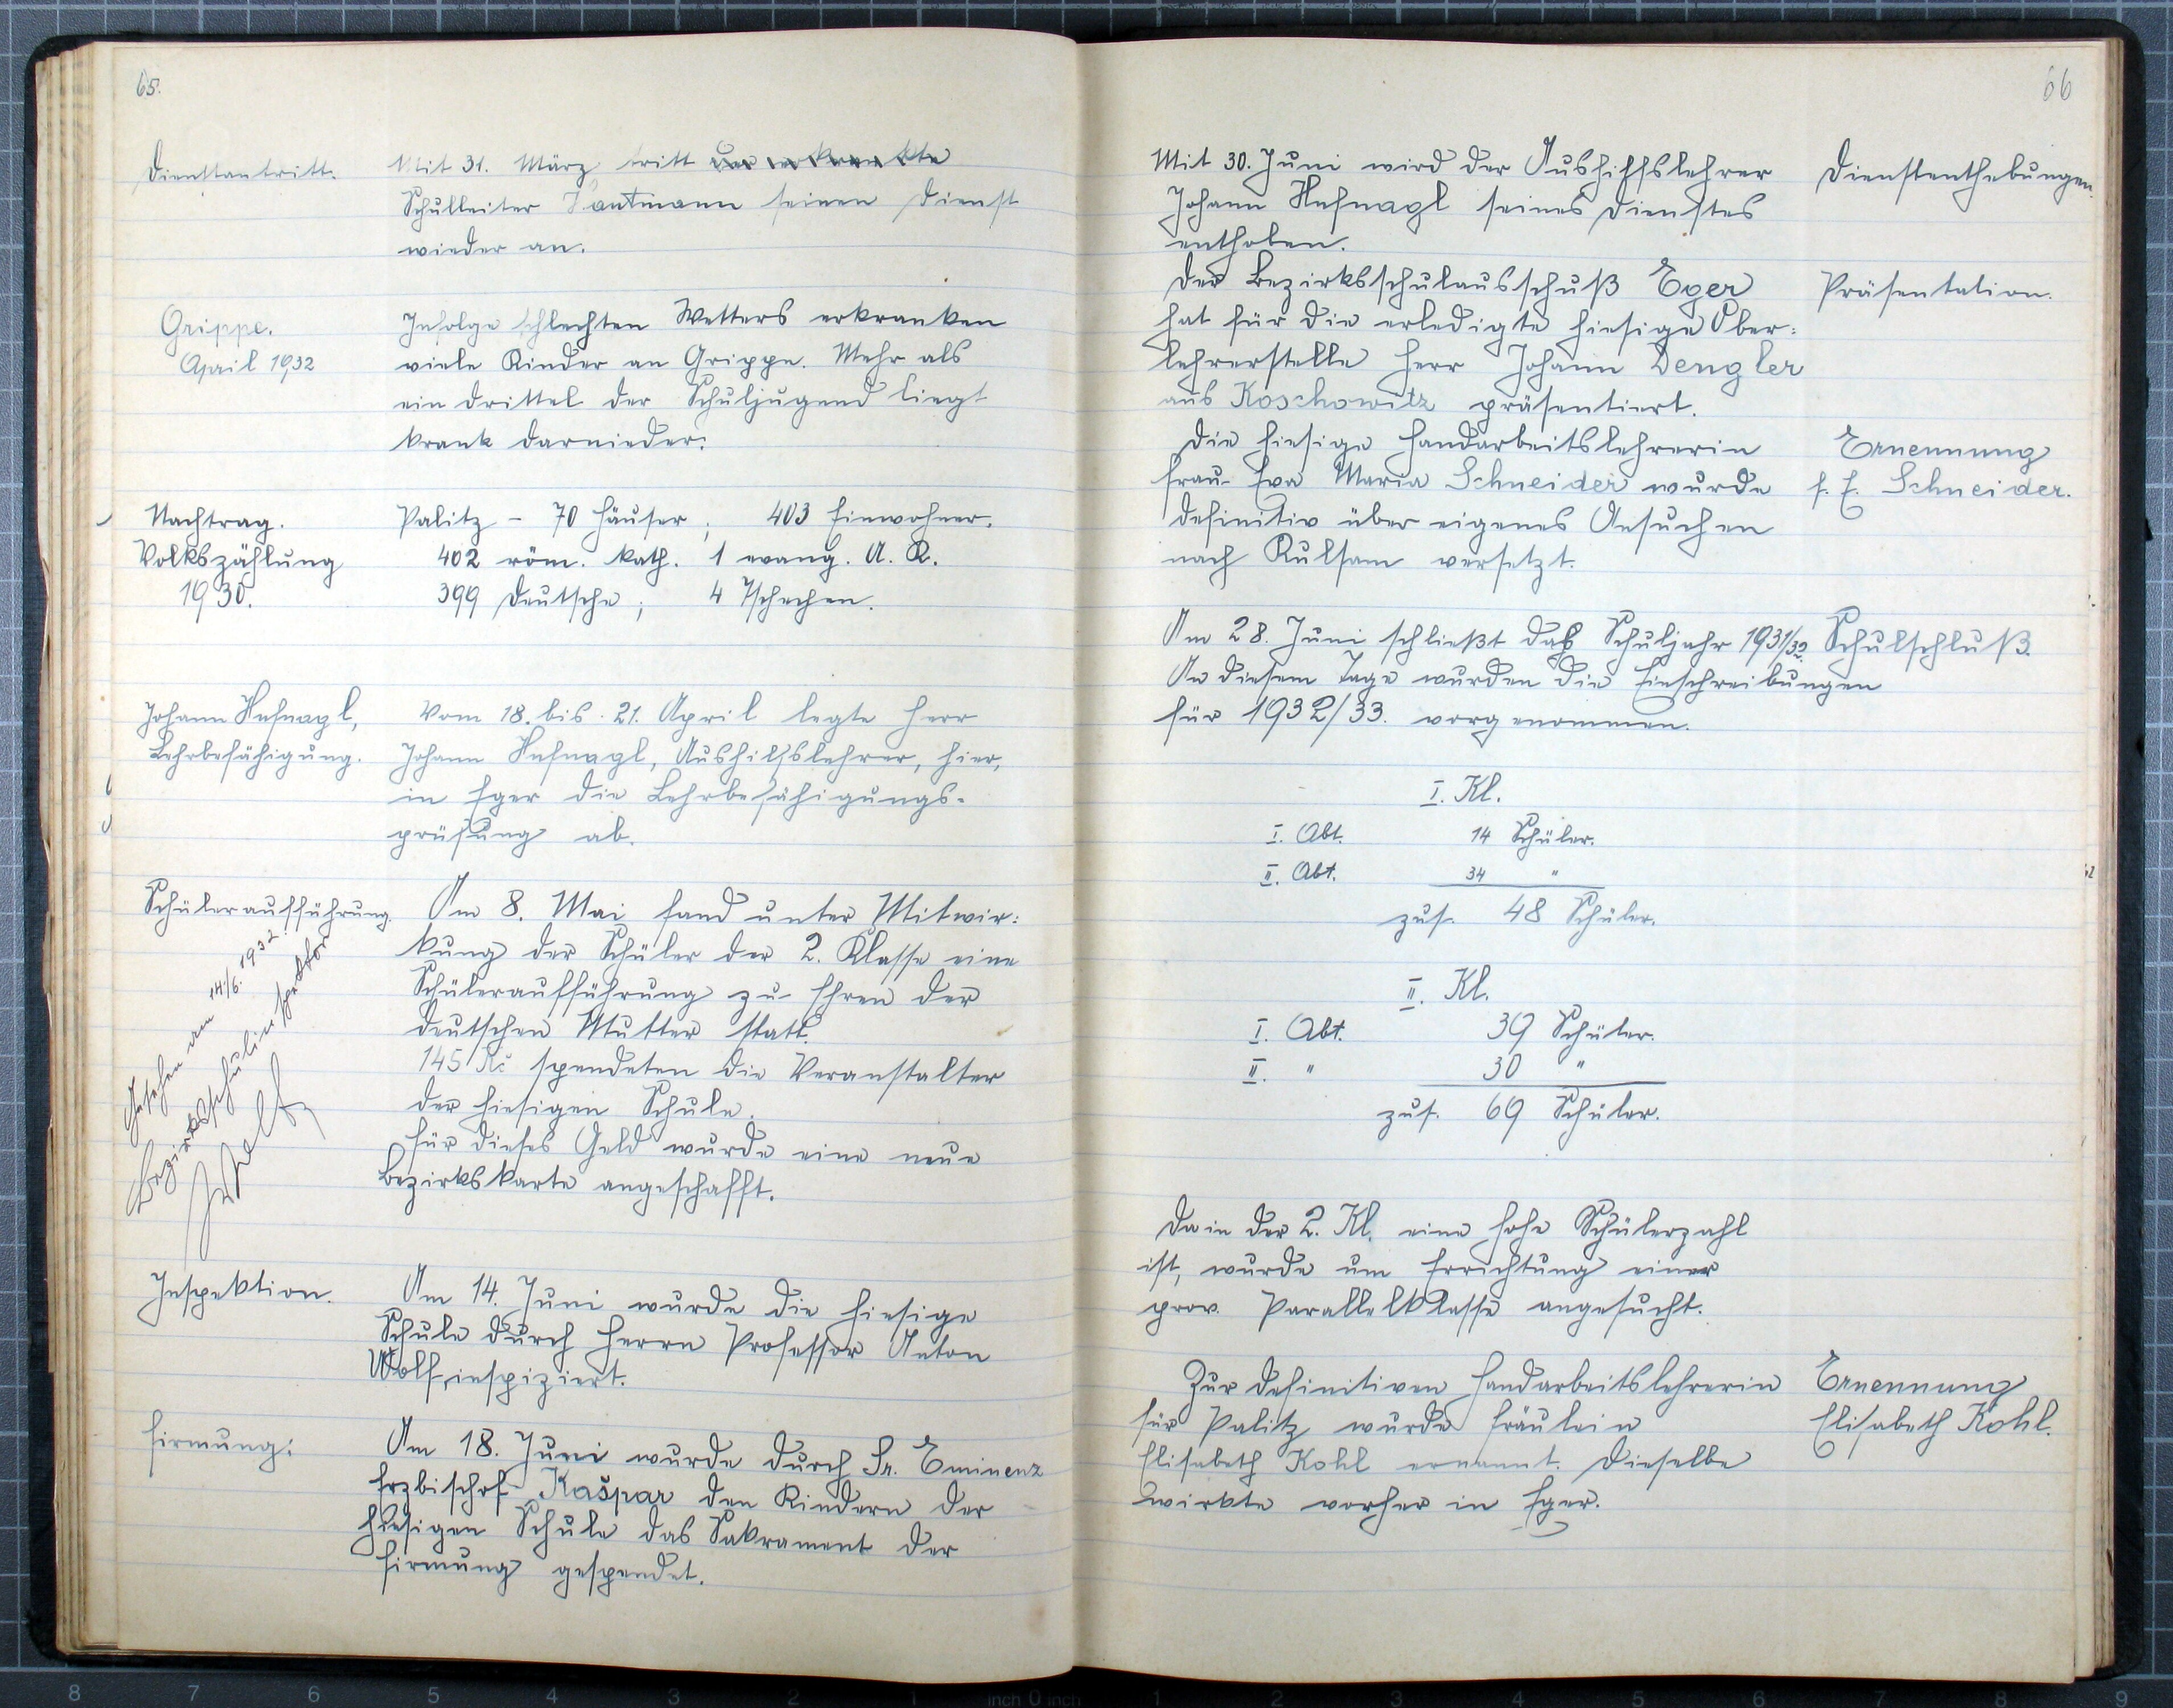 65.
Dienstantritt.
Mit 31. März tritt der erkrankte
Schulleiter Hantmann seinen Dienst
wieder an.
Grippe.
April 1932
Infolge schlechten Wetters erkranken
viele Kinder an Grippe. Mehr als
ein Drittel der Schuljugend liegt
krank darnieder.
Nachtrag.
Volkszählung
1930.
Palitz – 70 Häuser; 403 Einwohner.
402 röm. kath. 1 evang. A. K.
399 Deutsche; 4 Tschechen.
Johann Hufnagl,
Lehrbefähigung.
Vom 18. bis 21. April legte Herr
Johann Hufnagl, Aushilfslehrer, hier,
in Eger die Lehrbefähigungs-
prüfung ab.
Schüleraufführung.
Am 8. Mai fand unter Mitwir:
kung der Schüler der 2. Klasse eine
Schüleraufführung zu Ehren der
deutschen Mutter statt.
145 Kč spendeten die Veranstalter
der hiesigen Schule.
Für dieses Geld wurde eine neue
Bezirkskarte angeschafft.
Gesehen am 14./6. 1932.
Bezirksschulinspektor
Inspektion.
Am 14. Juni wurde die hiesige
Schule durch Herrn Professor Anton
Wolf inspiziert.
Firmung:
Am 18. Juni wurde durch Sr. Eminenz
Erzbischof Kašpar den Kindern der
hiesigen Schule das Sakrament der
Firmung gespendet.
66
Mit 30. Juni wird der Aushilfslehrer
Johann Hufnagl seines Dienstes
enthoben.
Dienstenthebungen.
Der Bezirksschulausschuß Eger
hat für die erledigte hiesige Ober:
lehrerstelle Herr Johann Dengler
aus Koschowitz präsentiert.
Präsentation.
Die hiesige Handarbeitslehrerin
Frau Eva Maria Schneider wurde
definitiv über eigenes Ansuchen
nach Kulsam versetzt.
Ernennung
f. E. Schneider.
Am 28. Juni schließt das Schuljahr 1931/32.
An diesem Tage wurden die Einschreibungen
für 1932/33. vorgenommen.
Schulschluß.
I. Kl.
I. Abt. 14 Schüler.
II. Abt. 34 "
zus. 48 Schüler.
II. Kl.
I. Abt. 39 Schüler.
II. " 30 "
zus. 69 Schüler.
Da in der 2. Kl. eine hohe Schülerzahl
ist, wurde um Errichtung einer
prov. Parallelklasse angesucht.
Zur definitiven Handarbeitslehrerin
für Palitz wurde Fräulein
Elisabeth Kohl ernannt. Dieselbe
wirkte vorher in Eger.
Ernennung
Elisabeth Kohl.
8 7 6 5 4 3 2 1 inch 0 inch 1 2 3 4 5 6 7 8 9